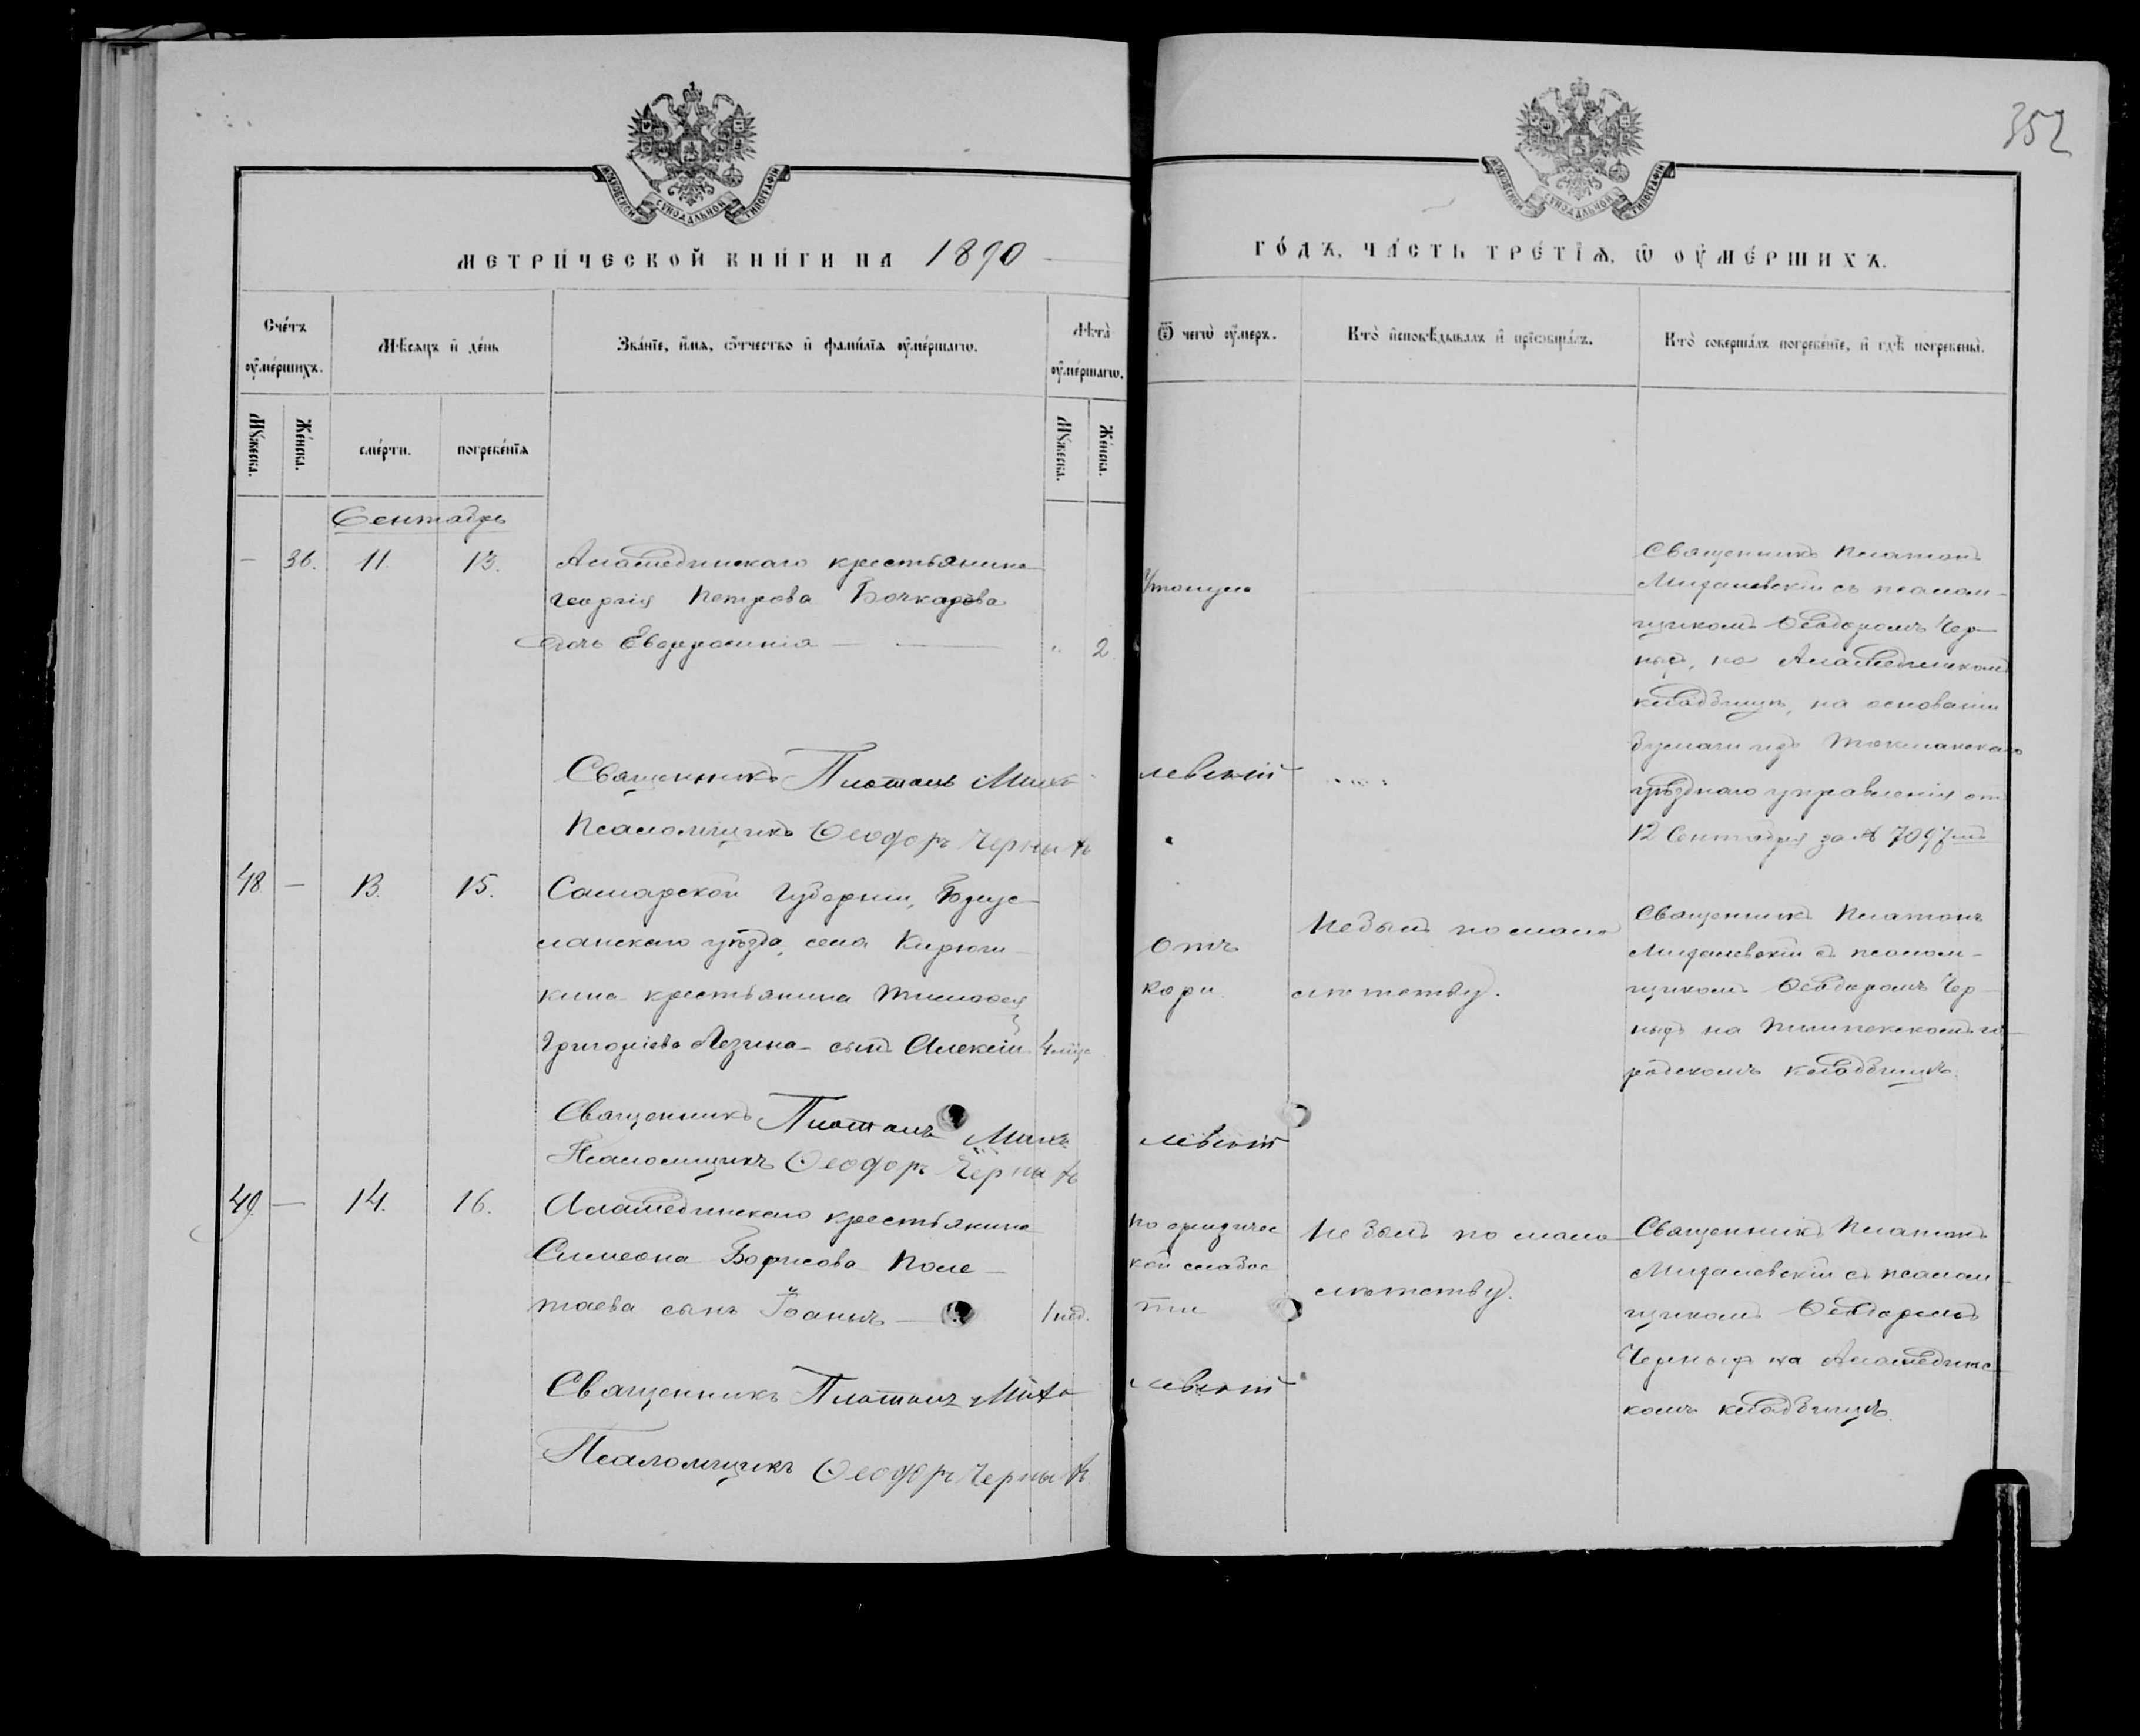 352
МОСКОВСКОЙ СѴНОДАЛЬНОЙ ТИПОГРАФІИ
МОСКОВСКОЙ СѴНОДАЛЬНОЙ ТИПОГРАФІИ
МЕТРИ́ЧЕСКОЙ КНИ́ГИ НА 1890
ГО́ДЪ, ЧА́СТЬ ТРЕ́ТІѦ, Ѽ ОУ҆МЕ́РШИХЪ.
Сче́тъ оу҆ме́ршихъ.
Мꙋ́жеска.
Же́нска.
Мѣ́сѧцъ и҆ де́нь
сме́рти.
погребе́нїѧ
Зва́нїе, и҆́мѧ, ѻ҆́тчество и҆ фами́лїѧ оу҆ме́ршагѡ.
Лѣ́та оу҆ме́ршагѡ.
Мꙋ́жеска.
Же́нска.
Ѿ чегѡ̀ оу҆́меръ.
Кто̀ и҆сповѣ́дывалъ и҆ прїѡбща́лъ.
Кто̀ соверша́лъ погребе́нїе, и҆ гдѣ̀ погребены̀.
Сентябрь
— 36. 11. 13. Аламединскаго крестьянина
Георгія Петрова Бочкарева
дочь Евфросинія — — „ 2.
Утонула
Священникъ Платонъ
Михалевскій съ псалом-
щикомъ Ѳеодоромъ Чер-
ныхъ, на Аламединскомъ
кладбищѣ, на основаніи
бумаги изъ Токмакскаго
уѣзднаго управленія отъ
12 Сентября за № 7097мъ
Священникъ Платонъ Михалевскій
Псаломщикъ Ѳеодоръ Черныхъ
48 — 13. 15. Самарской Губерніи, Бугус-
ланскаго уѣзда, села Кирюш-
кина крестьянина Тимоѳея
Григоріева Лезина сынъ Алексій 4 мѣс.
Отъ
кори
Не былъ по мало-
лѣтству.
Священникъ Платонъ
Михалевскій съ псалом-
щикомъ Ѳеодоромъ Чер-
ныхъ на Пишпекскомъ го-
родскомъ кладбищѣ.
Священникъ Платонъ Михалевскій
Псаломщикъ Ѳеодоръ Черныхъ
49. — 14. 16. Аламединскаго крестьянина
Симеона Борисова Поле-
таева сынъ Іоаннъ — 1 нед.
По физичес
кой слабос
ти
Не былъ по мало-
лѣтству.
Священникъ Платонъ
Михалевскій съ псалом-
щикомъ Ѳеодоромъ
Черныхъ на Аламединс-
комъ кладбищѣ.
Священникъ Платонъ Михалевскій
Псаломщикъ Ѳеодоръ Черныхъ